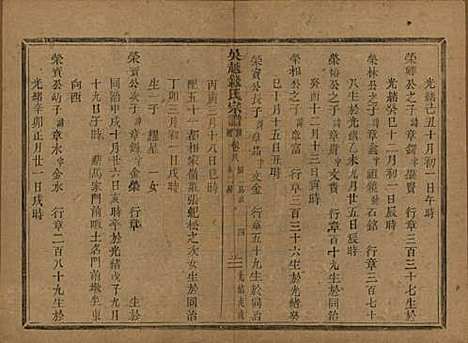 光緒己丑十月初一日午時
榮卿公之子諱章鍔字羅賢 行章三百三十七生於
光緒癸巳十二月初一日辰時
榮林公之子諱章鑫字祖鏡號石銘 行章三百七十
八生於光緒乙未九月廿五日辰時
榮楨公之子諱章 行章百十九生於同治
癸酉十二月十三日寅時
榮相公之子諱章富 行章三百三十六生於光緒癸
巳十月十五日卯時
榮寶公長子諱章 字文金 行章五十九生於同治
吳越錢氏宗譜 卷八 四 光緒
丙寅三月十八日巳時
配五十二都相家嶺張 松之次女生於同治
丁卯三月初一日戌時
生一子 耀星 一女
榮寶公次子諱章錫字金榮 行章 生於
同治甲戌十月廿六日亥時卒於光緒戊子九月
十九日子時 葬馬家門前畈土名門前墩坐東
向西
榮寶公幼子諱章水字金水 行章二百八十九生於
光緒辛卯正月廿一日戌時